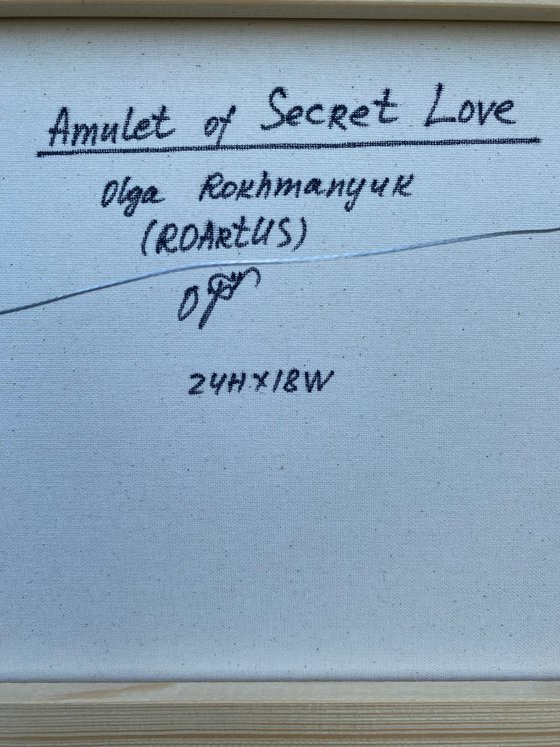 Amulet of Secret Love
Olga Rokhmanyuk
(ROARtUS)
24H X 18W